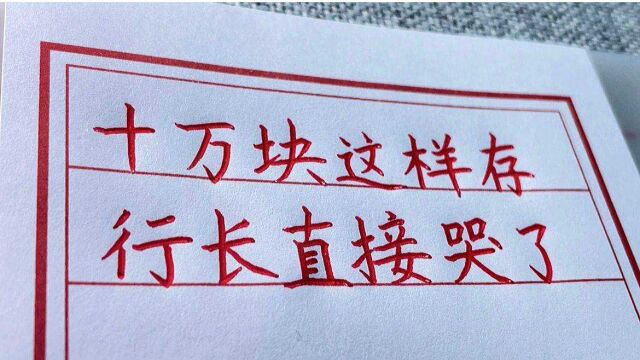 十万块这样存
行长直接哭了